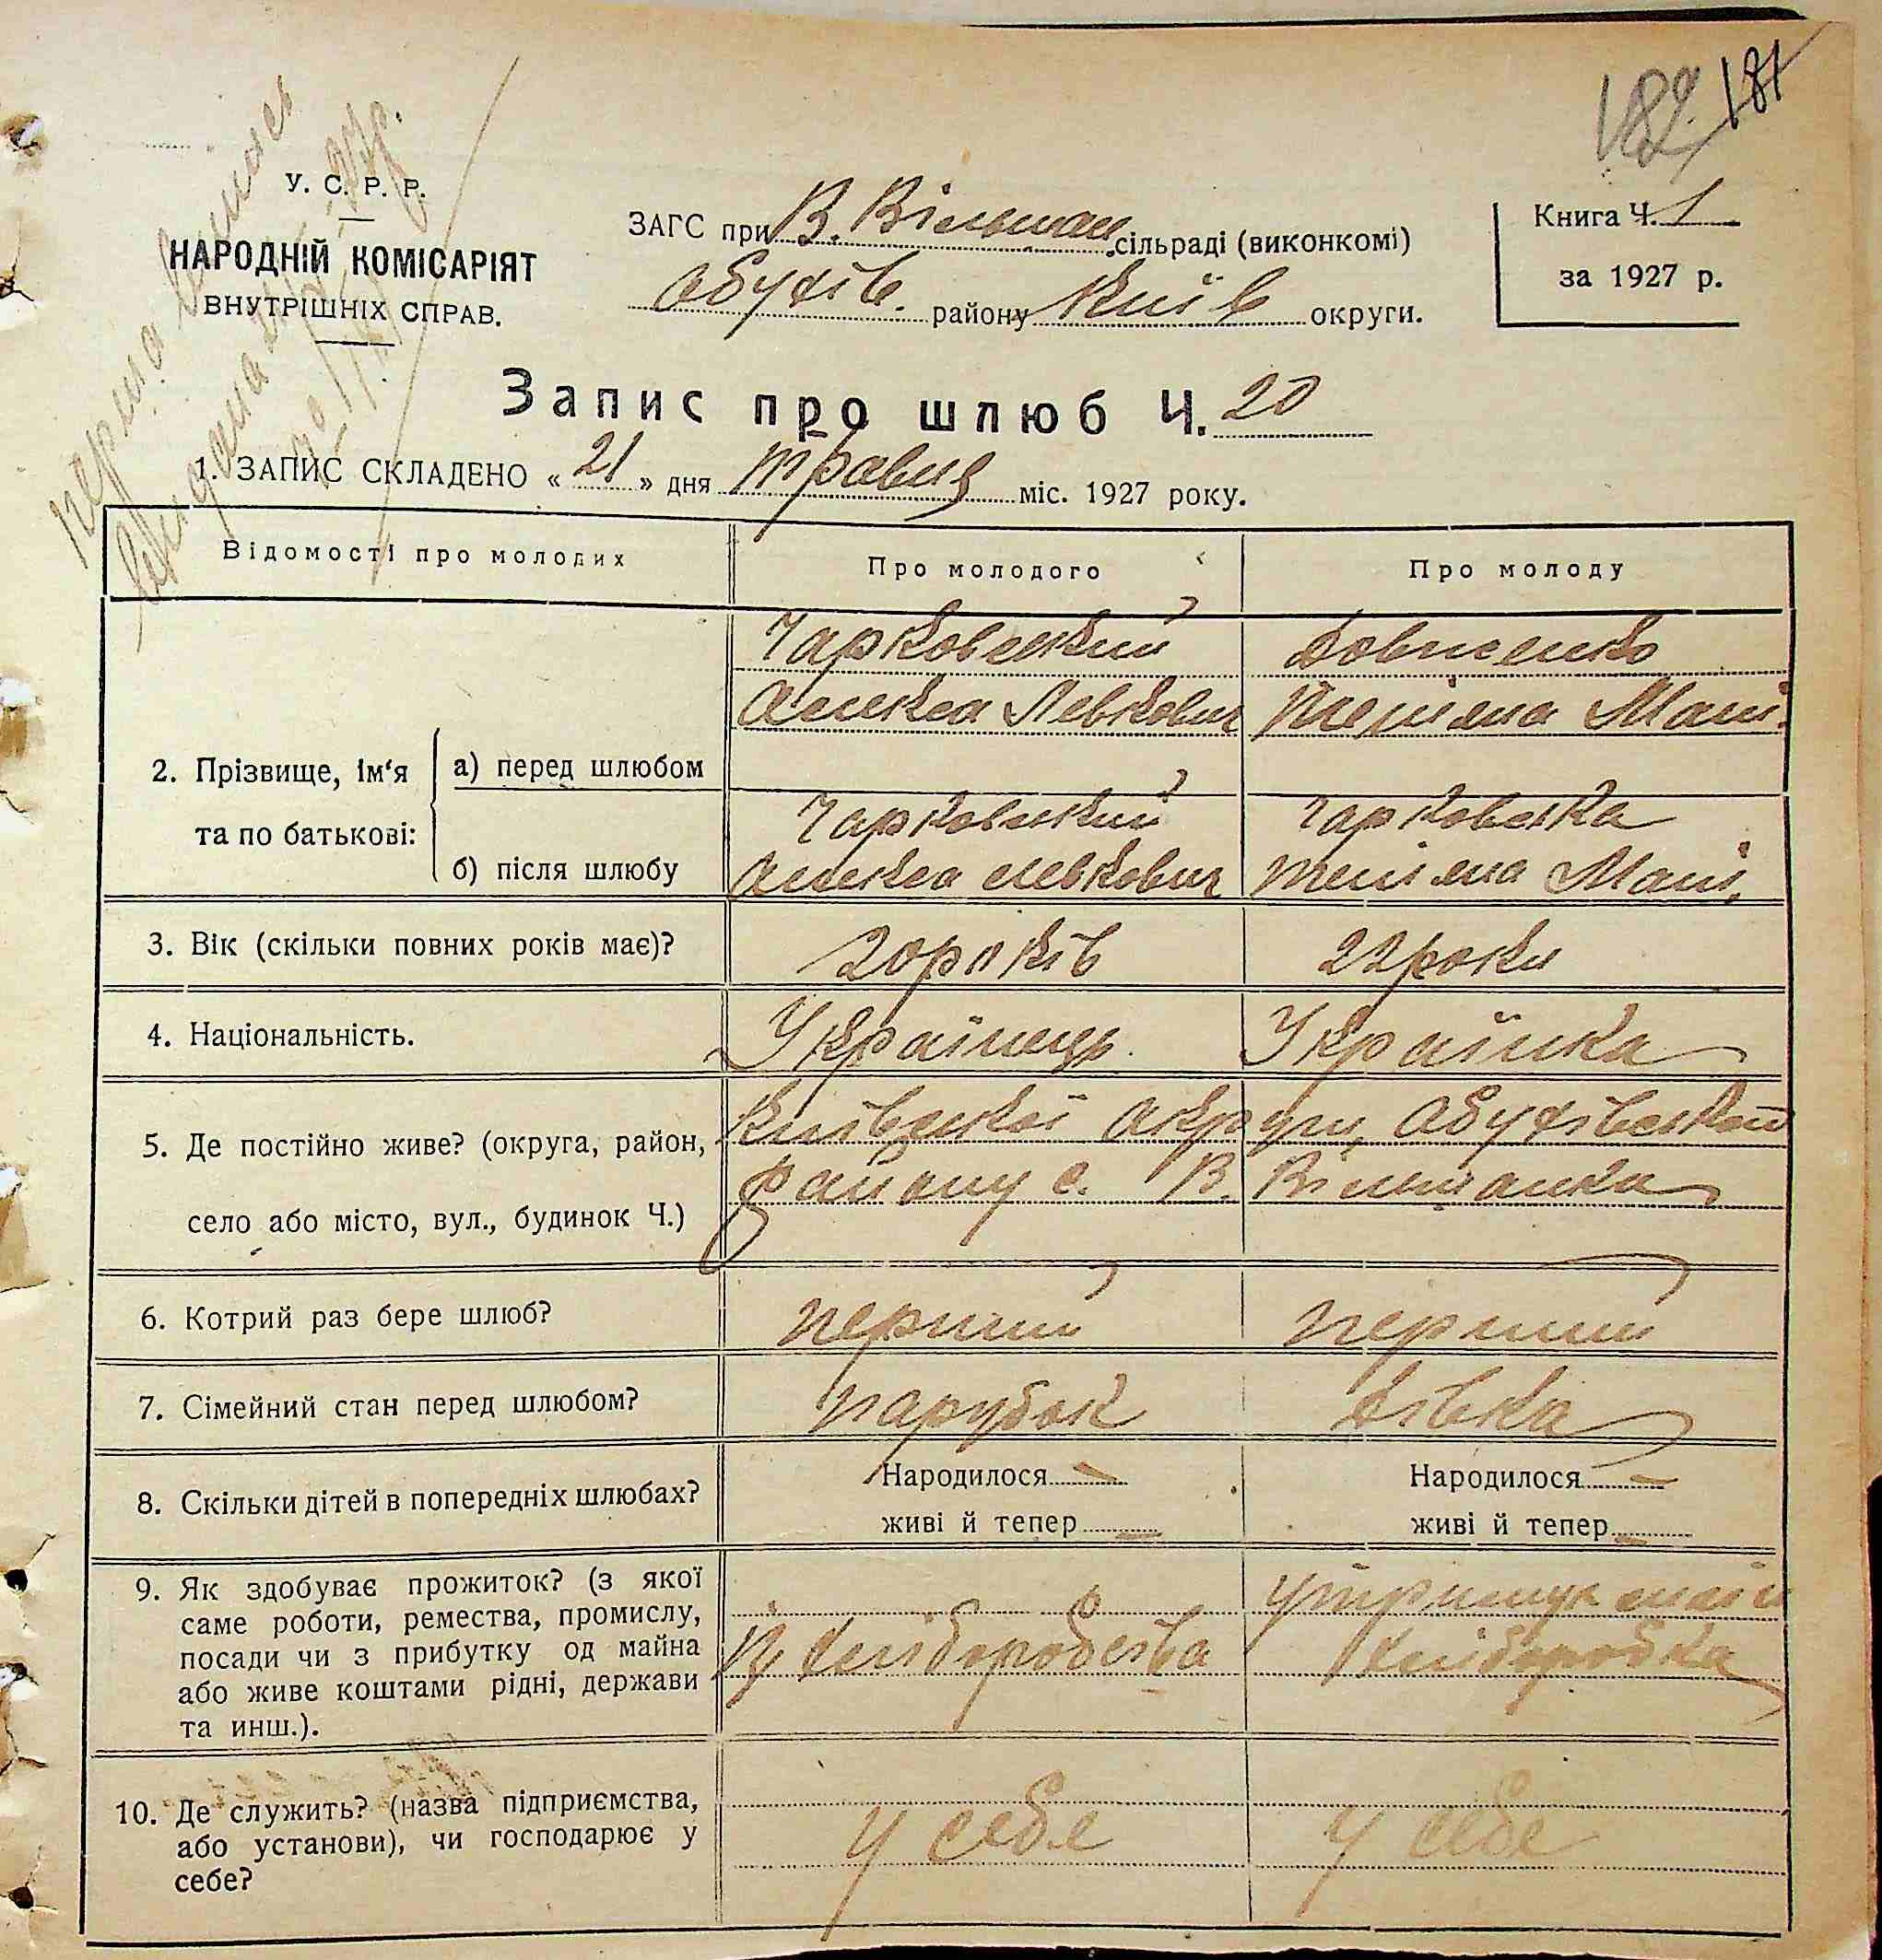 182 181
У. С. Р. Р.
НАРОДНІЙ КОМІСАРІЯТ
ВНУТРІШНІХ СПРАВ.
ЗАГС при В. Вільшан. сільраді (виконкомі)
Обухів. району Київ округи.
Книга Ч. 1
за 1927 р.
Запис про шлюб Ч. 20
1. ЗАПИС СКЛАДЕНО « 21 » дня травня міс. 1927 року.
Відомості про молодих
Про молодого
Про молоду
2. Прізвище, ім‘я та по батькові:
а) перед шлюбом
Чарковський
Алекса Левкович
Довженко
Тетіяна Мат.
б) після шлюбу
Чарковський
Алекса Левкович
Чарковська
Тетіяна Мат.
3. Вік (скільки повних років має)?
20 років
22 роки
4. Національність.
Українець.
Українка
5. Де постійно живе? (округа, район,
село або місто, вул., будинок Ч.)
Київської округи, Обухівського
району с. В. Вільшанка
6. Котрий раз бере шлюб?
перший
перший
7. Сімейний стан перед шлюбом?
парубок
дівка
8. Скільки дітей в попередніх шлюбах?
Народилося —
живі й тепер —
Народилося —
живі й тепер —
9. Як здобуває прожиток? (з якої
саме роботи, ремества, промислу,
посади чи з прибутку од майна
або живе коштами рідні, держави
та инш.).
Із хліборобства
хліборобка
10. Де служить? (назва підприємства,
або установи), чи господарює у
себе?
у себе
у себе